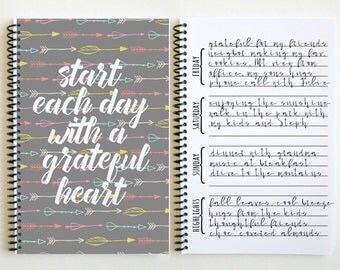 start
each day
with a
grateful
heart
FRIDAY
grateful for my friends
neighbor making my fav
cookies, the view from
office, my sons hugs
phone call with Julie
SATURDAY
enjoying the sunshine
walk in the park with
my kids and Steph
SUNDAY
dinner with grandma
music at breakfast
drive to the mountains
HIGHLIGHTS
fall leaves, cool breeze
hugs from the kids
thoughtful friends
choc covered almonds